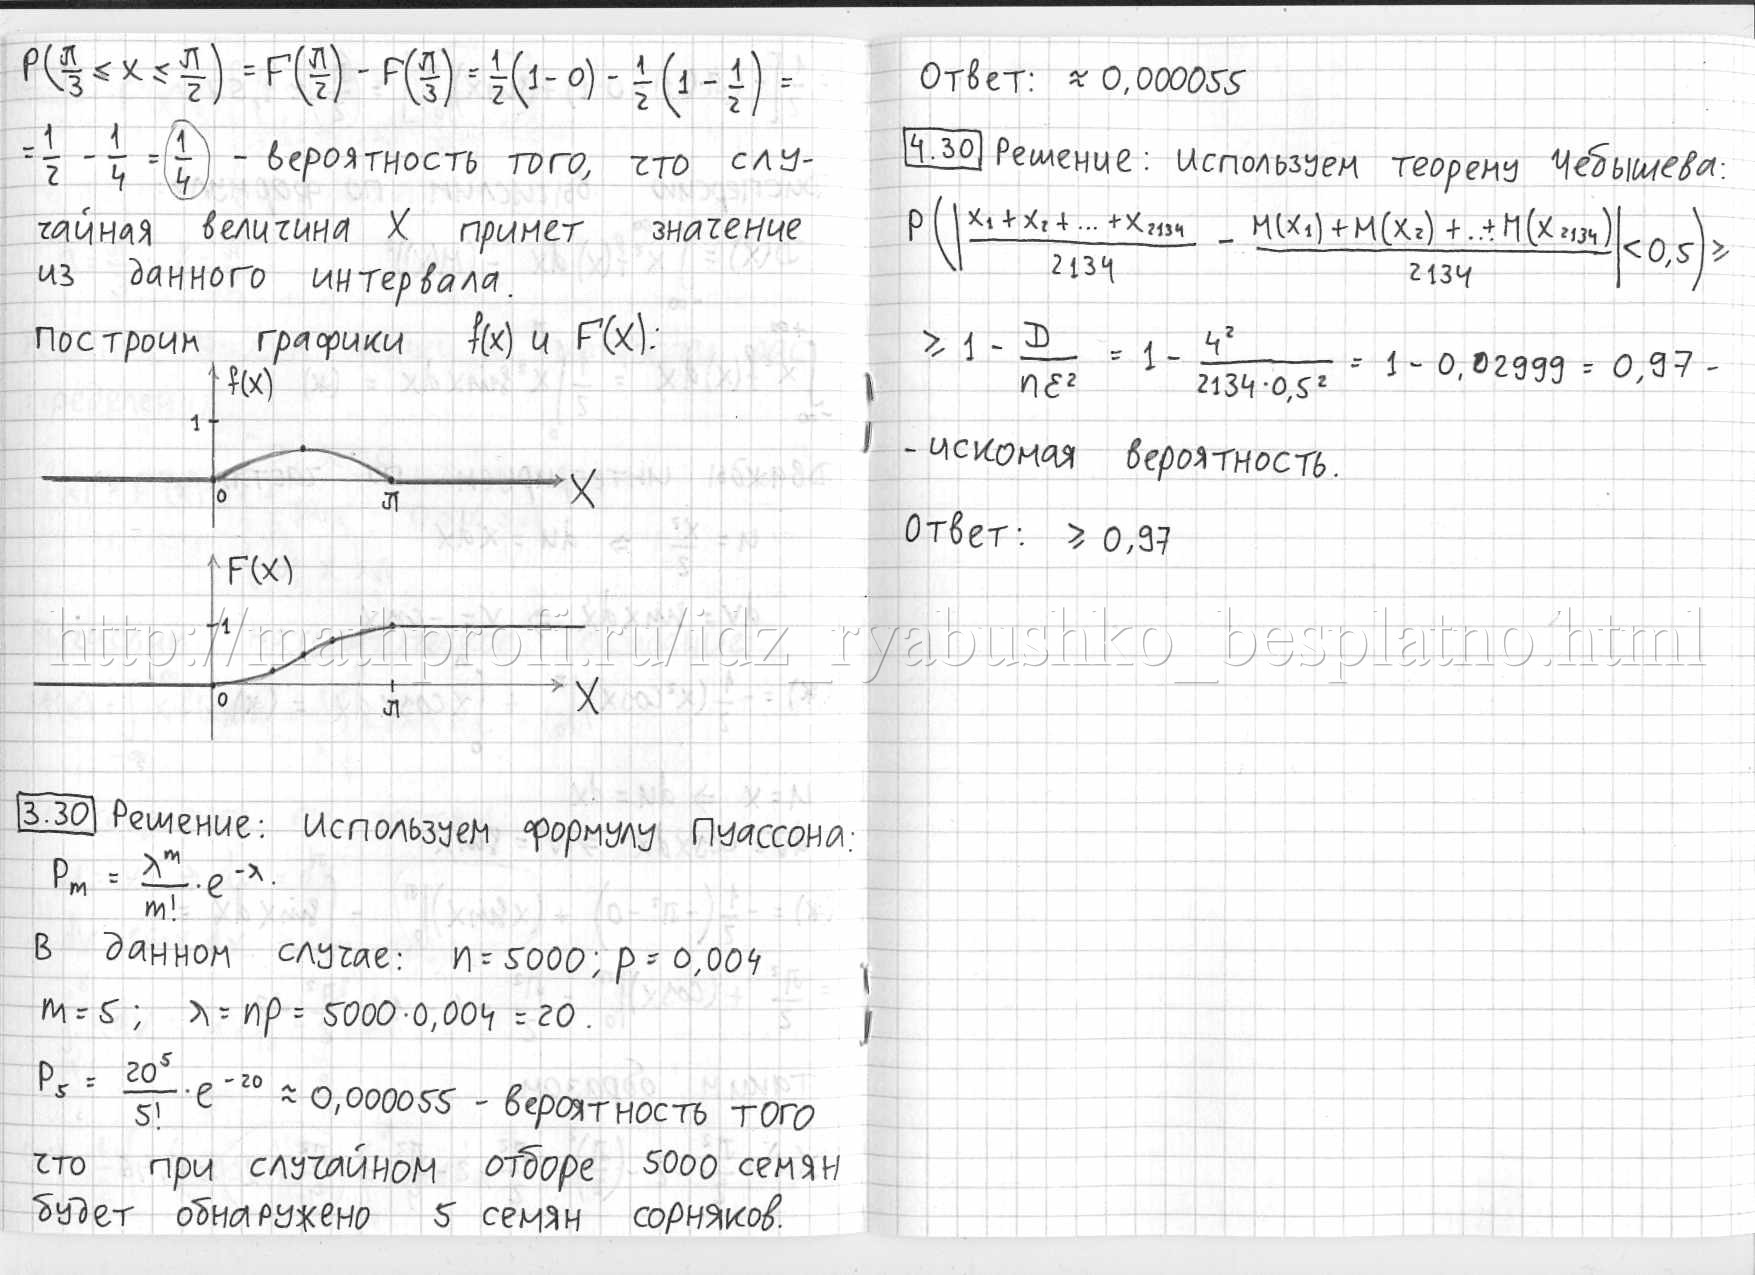 P(π/3 ≤ x ≤ π/2) = F(π/2) - F(π/3) = 1/2(1-0) - 1/2(1 - 1/2) =
= 1/2 - 1/4 = 1/4 - вероятность того, что слу-
чайная величина X примет значение
из данного интервала.
Построим графики f(x) и F(x):
f(x)
1
0 π X
F(x)
1
0 π X
3.30 Решение: Используем формулу Пуассона:
Pm = λ^m/m! · e^-λ.
В данном случае: n = 5000; p = 0,004
m = 5; λ = np = 5000·0,004 = 20.
P5 = 20^5/5! · e^-20 ≈ 0,000055 - вероятность того
что при случайном отборе 5000 семян
будет обнаружено 5 семян сорняков.
Ответ: ≈ 0,000055
4.30 Решение: Используем теорему Чебышева:
P(|(x1 + x2 + ... + x2134)/2134 - (M(x1) + M(x2) + ..+ M(x2134))/2134| < 0,5) ≥
≥ 1 - D/nε² = 1 - 4²/(2134·0,5²) = 1 - 0,02999 = 0,97 -
- искомая вероятность.
Ответ: ≥ 0,97
http://mathprofi.ru/idz_ryabushko_besplatno.html